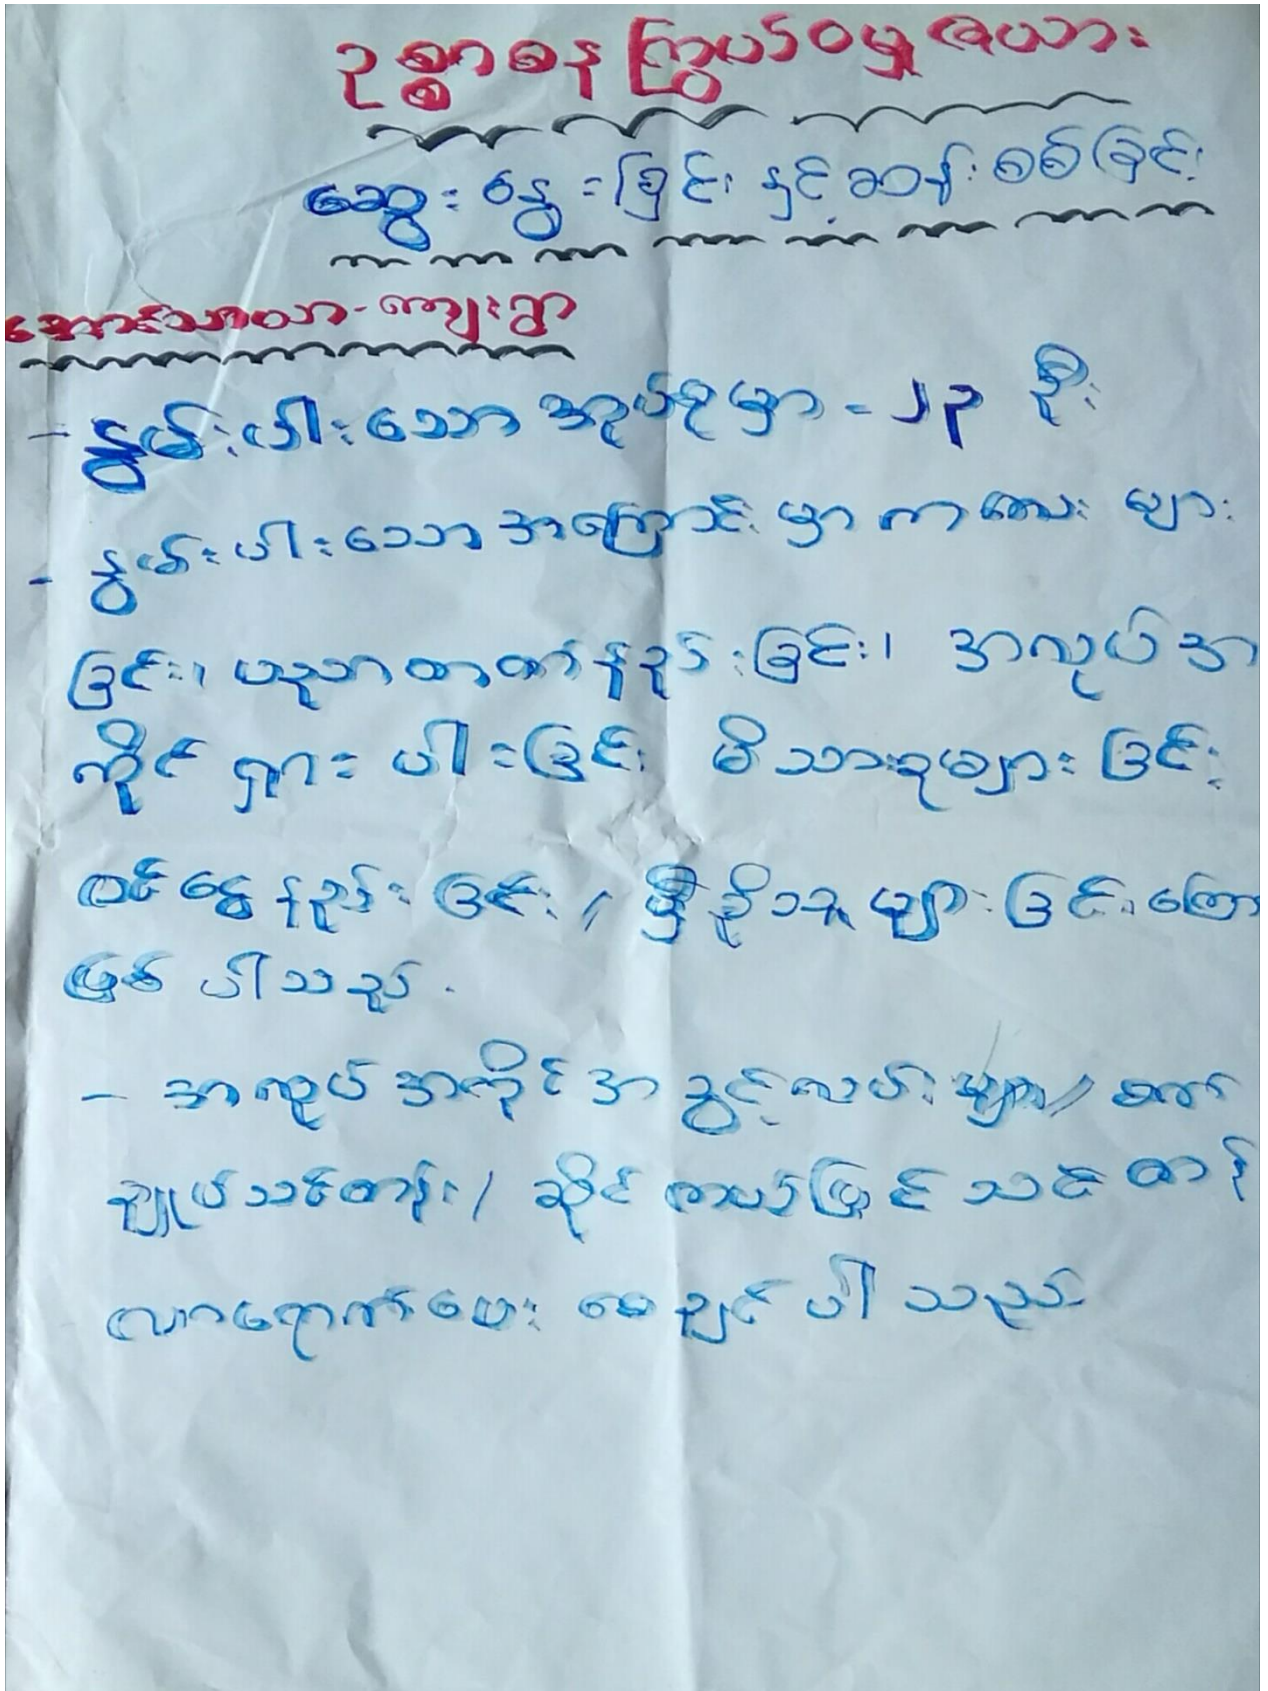 ဥစ္စာဓန ကြွယ်ဝမှု ဇယား
ဆွေးနွေးခြင်း နှင့် ဆန်းစစ်ခြင်း
အောင်သာယာ-ကျေးရွာ
- နွမ်းပါးသော အုပ်စုမှာ - ၂၃ ဦး
- နွမ်းပါးသော အကြောင်းမှာ ကလေး များ
ခြင်း၊ ပညာတတ်နည်းခြင်း၊ အလုပ်အ
ကိုင် ရှားပါးခြင်း မိသားစုများခြင်း
ဝင်ငွေနည်းခြင်း / မှီခိုသူ များခြင်းကြော
ဖြစ် ပါသည်.
- အလုပ်အကိုင်အခွင့်လမ်းများ / စက်
ချုပ်သင်တန်း / ဆိုင်ကယ်ပြင် သင်တန်
လာရောက်ပေး စေချင် ပါ သည်